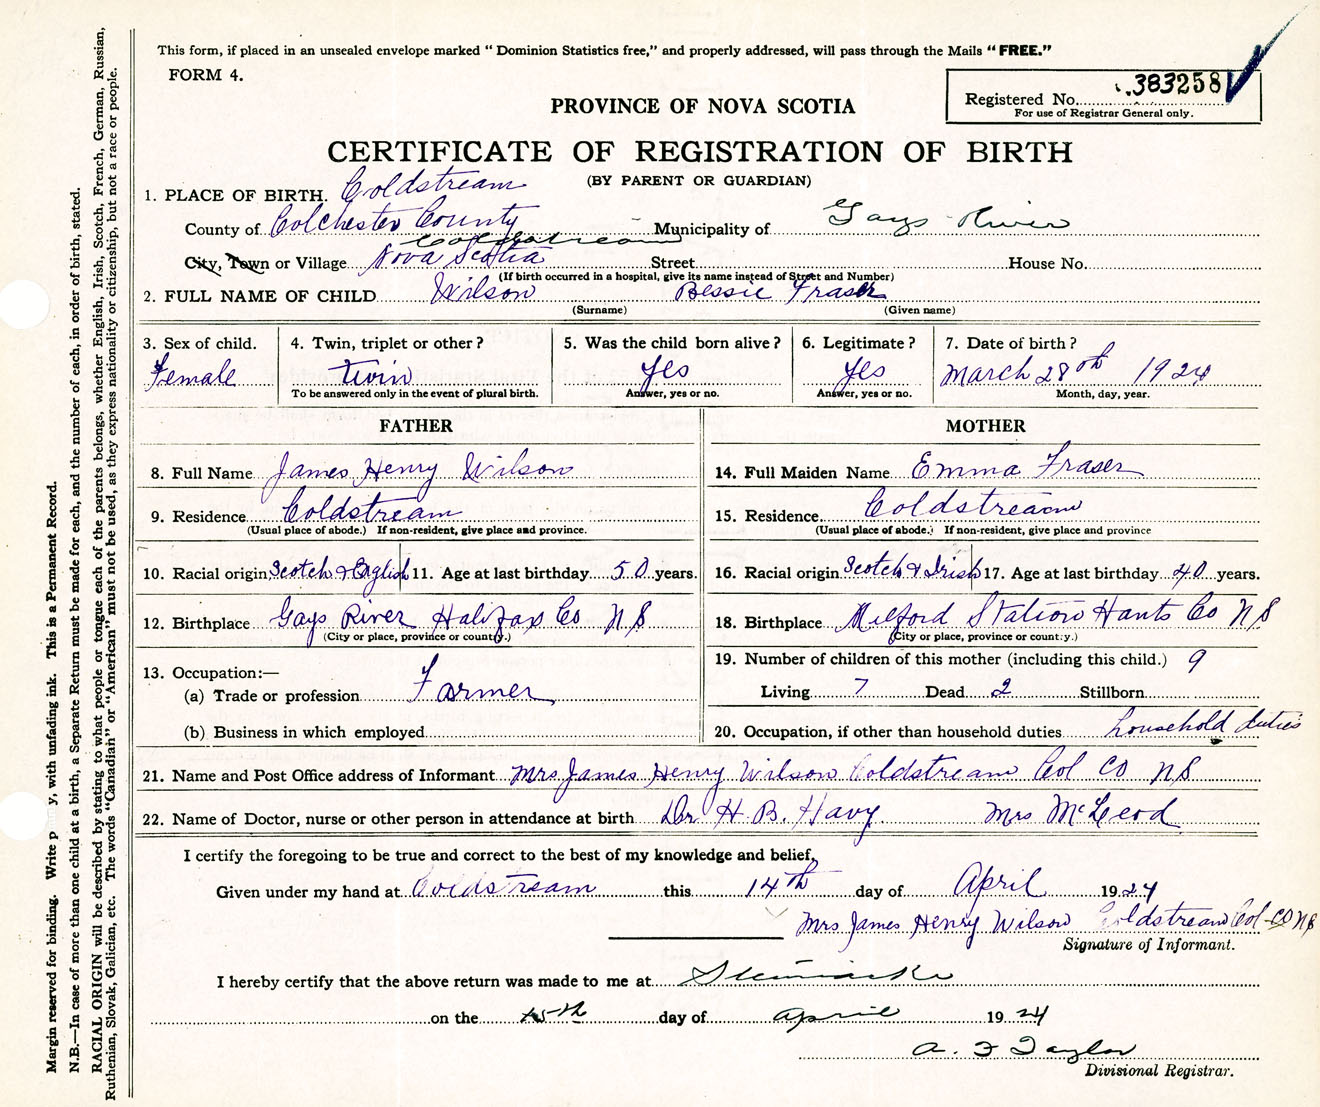 This form, if placed in an unsealed envelope marked " Dominion Statistics free," and properly addressed, will pass through the Mails " FREE."
FORM 4.
Registered No. 383258
For use of Registrar General only.
PROVINCE OF NOVA SCOTIA
CERTIFICATE OF REGISTRATION OF BIRTH
(BY PARENT OR GUARDIAN)
1. PLACE OF BIRTH. Coldstream
County of Colchester County Municipality of Gays River
Coldstream
City, Town or Village Nova Scotia Street House No.
(If birth occurred in a hospital, give its name instead of Street and Number)
2. FULL NAME OF CHILD Wilson Bessie Fraser
(Surname) (Given name)
3. Sex of child. 4. Twin, triplet or other? 5. Was the child born alive? 6. Legitimate? 7. Date of birth?
Female twin Yes Yes March 28th 1924
To be answered only in the event of plural birth. Answer, yes or no. Answer, yes or no. Month, day, year.
FATHER MOTHER
8. Full Name James Henry Wilson 14. Full Maiden Name Emma Fraser
9. Residence Coldstream 15. Residence Coldstream
(Usual place of abode.) If non-resident, give place and province. (Usual place of abode.) If non-resident, give place and province
10. Racial origin Scotch & English 11. Age at last birthday 50 years. 16. Racial origin Scotch & Irish 17. Age at last birthday 40 years.
12. Birthplace Gays River Halifax Co N.S 18. Birthplace Milford Station Hants Co N S
(City or place, province or county.) (City or place, province or county.)
13. Occupation:— 19. Number of children of this mother (including this child.) 9
(a) Trade or profession Farmer Living 7 Dead 2 Stillborn
(b) Business in which employed 20. Occupation, if other than household duties household duties
21. Name and Post Office address of Informant Mrs James Henry Wilson Coldstream Col Co N S
22. Name of Doctor, nurse or other person in attendance at birth Dr H. B. Havy. Mrs McLeod
I certify the foregoing to be true and correct to the best of my knowledge and belief,
Given under my hand at Coldstream this 14th day of April 1924
Mrs James Henry Wilson Coldstream Col-Co N S
Signature of Informant.
I hereby certify that the above return was made to me at
on the 15th day of April 1924
A. F Taylor
Divisional Registrar.
Margin reserved for binding. Write with unfading ink. This is a Permanent Record.
N.B.—In case of more than one child at a birth, a Separate Return must be made for each, and the number of each, in order of birth, stated.
RACIAL ORIGIN will be described by stating to what people or tongue each of the parents belongs, whether English, Irish, Scotch, French, German, Russian,
Ruthenian, Slovak, Galician, etc. The words "Canadian" or "American" must not be used, as they express nationality or citizenship, but not a race or people.